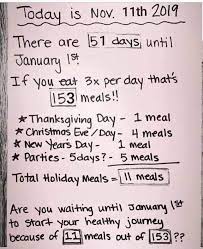 Today is Nov. 11th 2019
There are 51 days until
January 1st.
If you eat 3x per day that's
153 meals!!
★ Thanksgiving Day - 1 meal
★ Christmas Eve/Day - 4 meals
★ New Years Day - 1 meal
★ Parties - 5days? - 5 meals
Total Holiday Meals = 11 meals
Are you waiting until January 1st
to start your healthy journey
because of 11 meals out of 153 ??